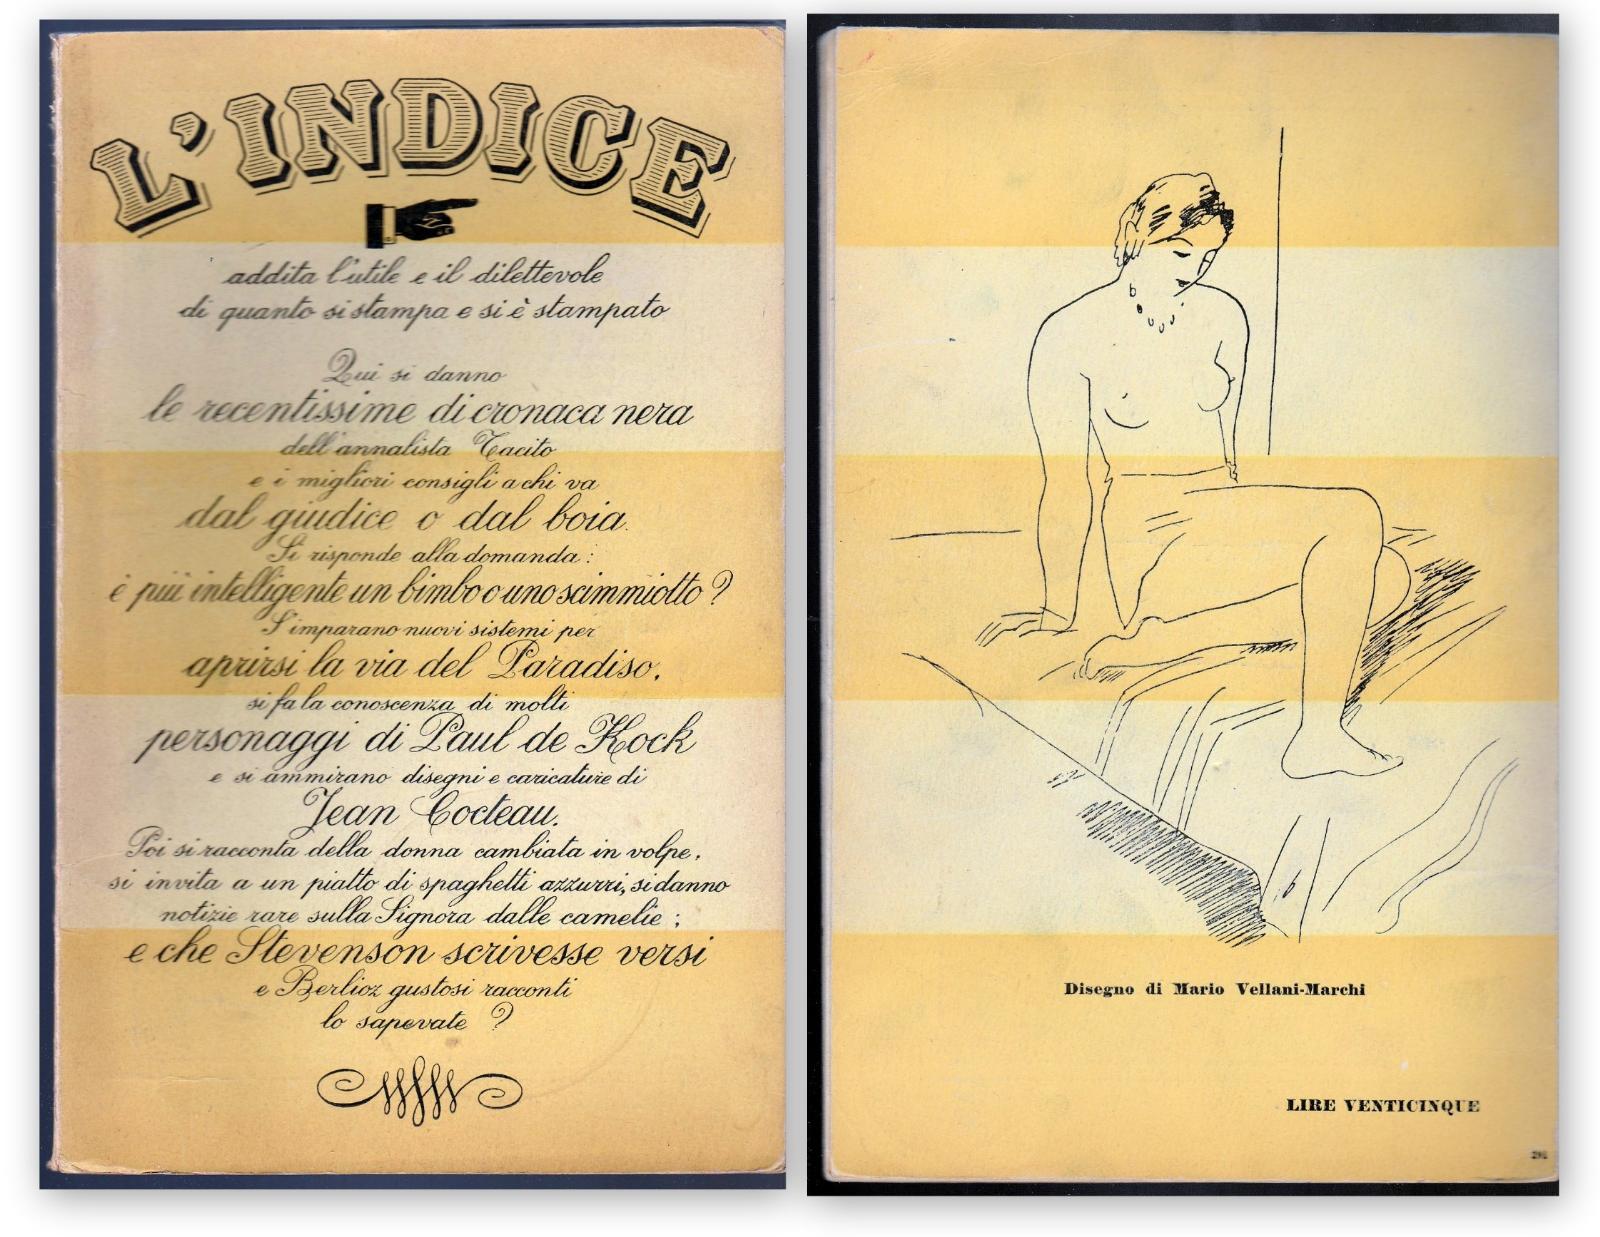 L'INDICE
addita l'utile e il dilettevole
di quanto si stampa e si è stampato
Qui si danno
le recentissime di cronaca nera
dell'annalista Tacito
e i migliori consigli a chi va
dal giudice o dal boia.
Si risponde alla domanda:
è più intelligente un bimbo o uno scimmiotto?
S'imparano nuovi sistemi per
aprirsi la via del Paradiso,
si fa la conoscenza di molti
personaggi di Paul de Kock
e si ammirano disegni e caricature di
Jean Cocteau.
Poi si racconta della donna cambiata in volpe,
si invita a un piatto di spaghetti azzurri, si danno
notizie rare sulla Signora dalle camelie;
e che Stevenson scrivesse versi
e Berlioz gustosi racconti
lo sapevate?
Disegno di Mario Vellani-Marchi
LIRE VENTICINQUE